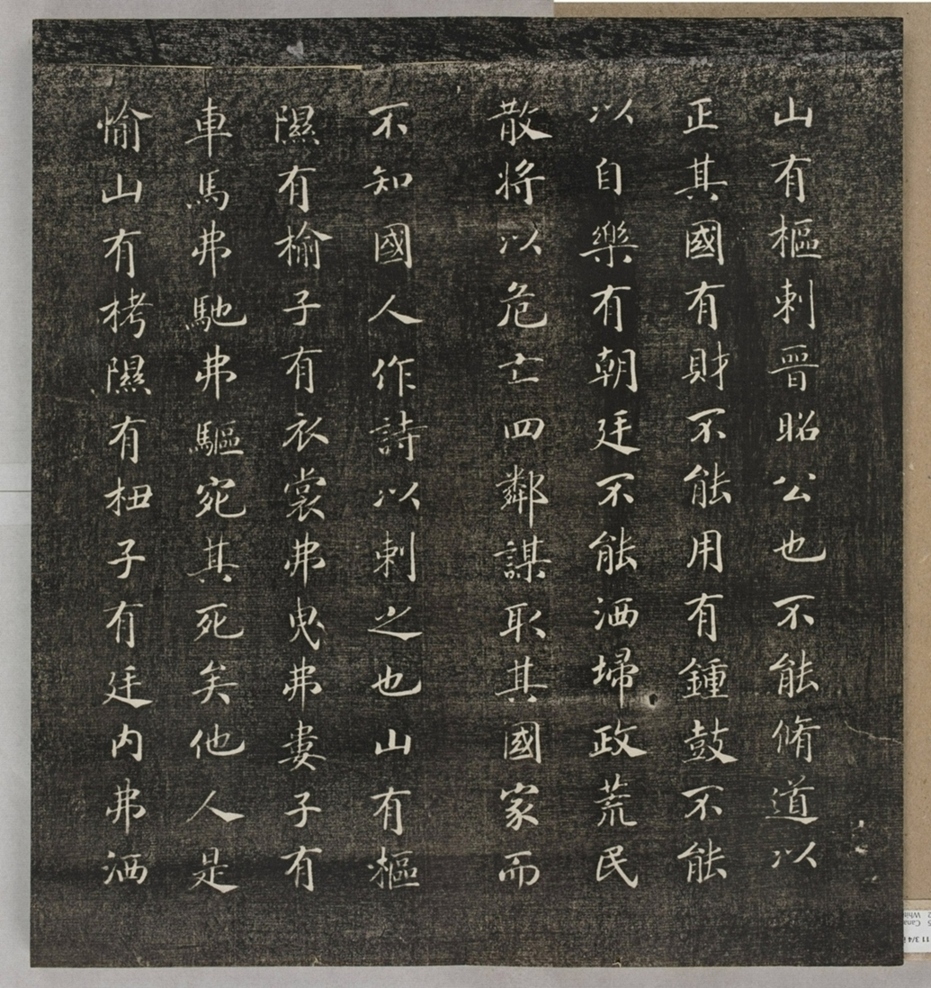 山有樞刺晉昭公也不能脩道以
正其國有財不能用有鍾鼓不能
以自樂有朝廷不能洒埽政荒民
散將以危亡四鄰謀取其國家而
不知國人作詩以刺之也山有樞
隰有榆子有衣裳弗曳弗婁子有
車馬弗馳弗驅宛其死矣他人是
愉山有栲隰有杻子有廷內弗洒